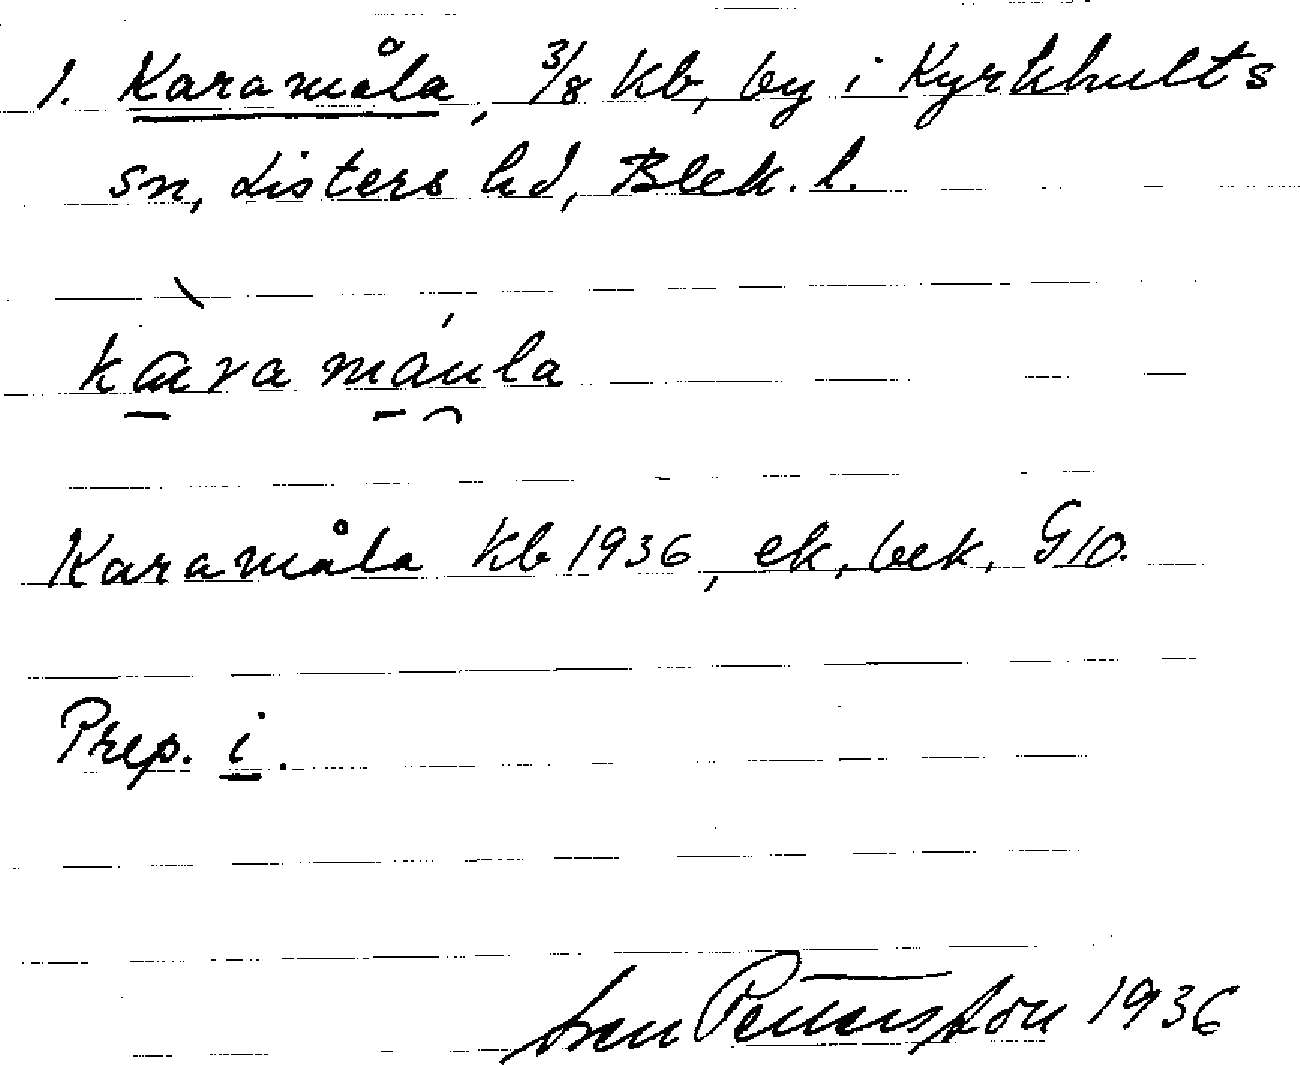 1. Karamåla, 3/8 Kb, by i Kyrkhults
sn, Listers hd, Blek. l.
kàra máula
Karamåla Kb 1936, ek, bek, G10.
Prep. i.
Pettersson 1936